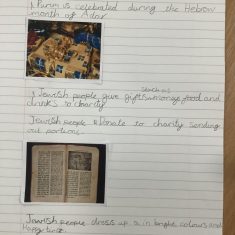 Purim is celebrated during the Hebrew
month of Adar
such as
Jewish people give gifts money, food and
drinks to charity
Jewish people Donate to charity sending
out portions.
Jewish people dress up in bright colours and